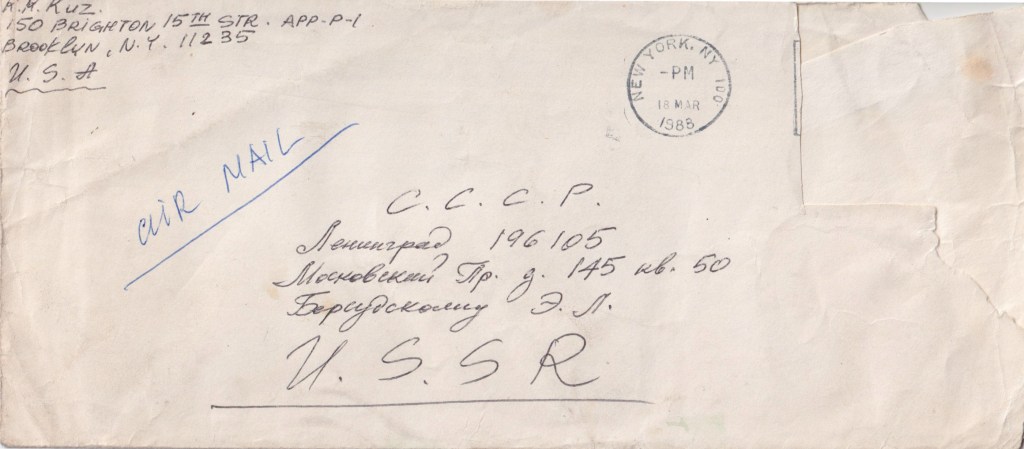 KUZ.
150 BRIGHTON 15TH STR. APP-P-1
BROOKLYN, N.Y. 11235
U. S. A
NEW YORK, NY 100
-PM
18 MAR
1988
AIR MAIL
С. С. С. Р.
Ленинград 196105
Московский Пр. д. 145 кв. 50
Берсудскому Э. Л.
U. S. S R